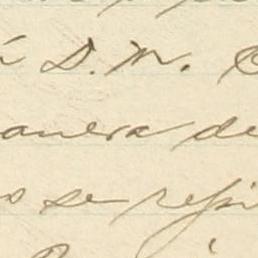 D. M.
anera de
o se refi